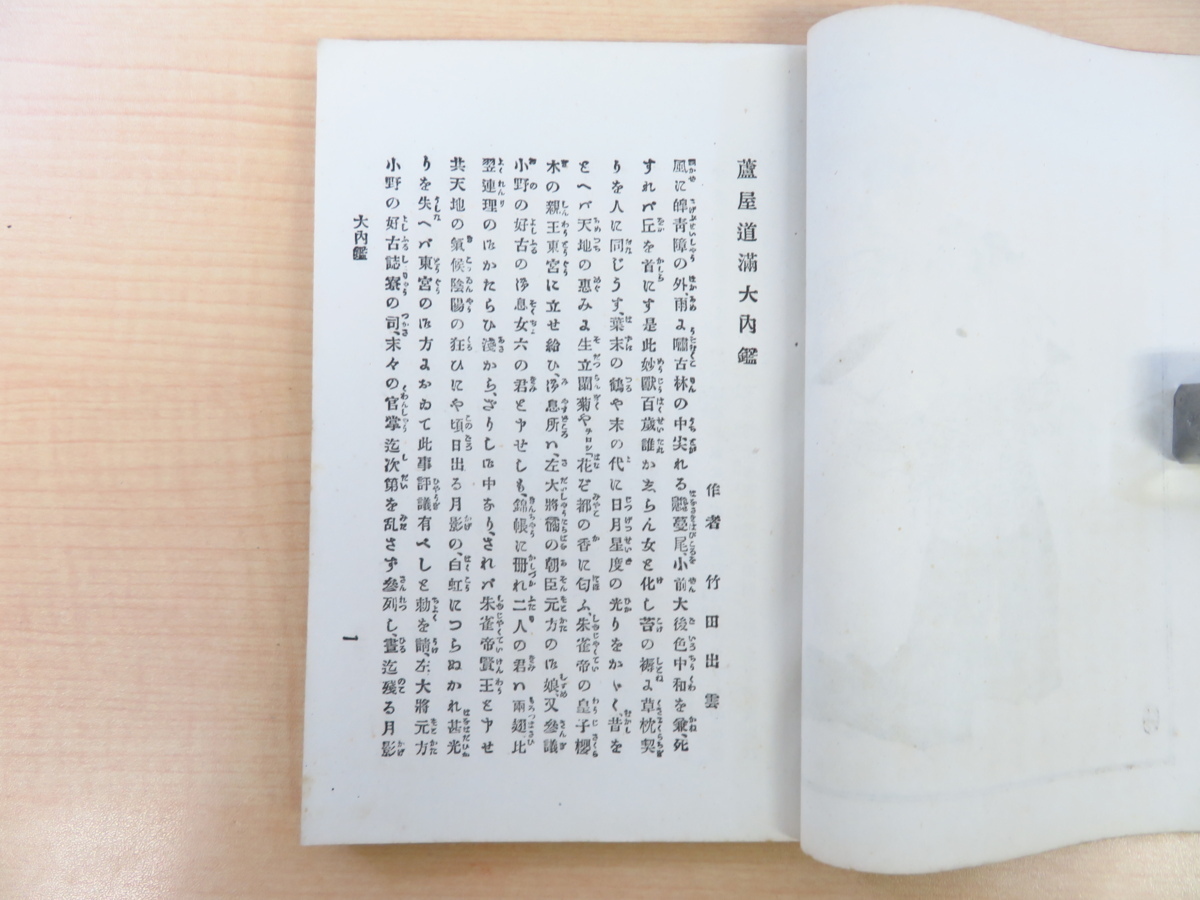 蘆屋道滿大內鑑
作者 竹田出雲
風に嘷靑障の外、雨よ嘯古林の中尖れる 蔓尾、小前大後色中和を兼、死
すれバ丘を首にす是此妙獸百歲誰かゑらん女と化し苔の褥よ草枕契
りを人に同じうす、葉末の鶴や末の代に日月星度の光りをかゝく、昔を
とへバ天地の惠みよ生立蘭菊や花ぞ都の香に匂ふ、朱雀帝の皇子櫻
木の親王東宮に立せ給ひ、御息所ハ、左大將橘の朝臣元方の御娘、又參議
小野の好古の御息女六の君と申せしも、錦帳に冊れ二人の君ハ兩翅比
翌連理の御かたらひ淺から、ざりし御中なり、されバ朱雀帝賢王と申せ
共天地の氣候陰陽の狂ひにや頃日出る月影の、白虹につらぬかれ甚光
りを失へバ東宮の御方よおゐて此事評議有べしと勅を請、左大將元方
小野の好古諸寮の司、末々の官掌迄次第を乱さず參列し、晝迄殘る月影
大內鑑
一